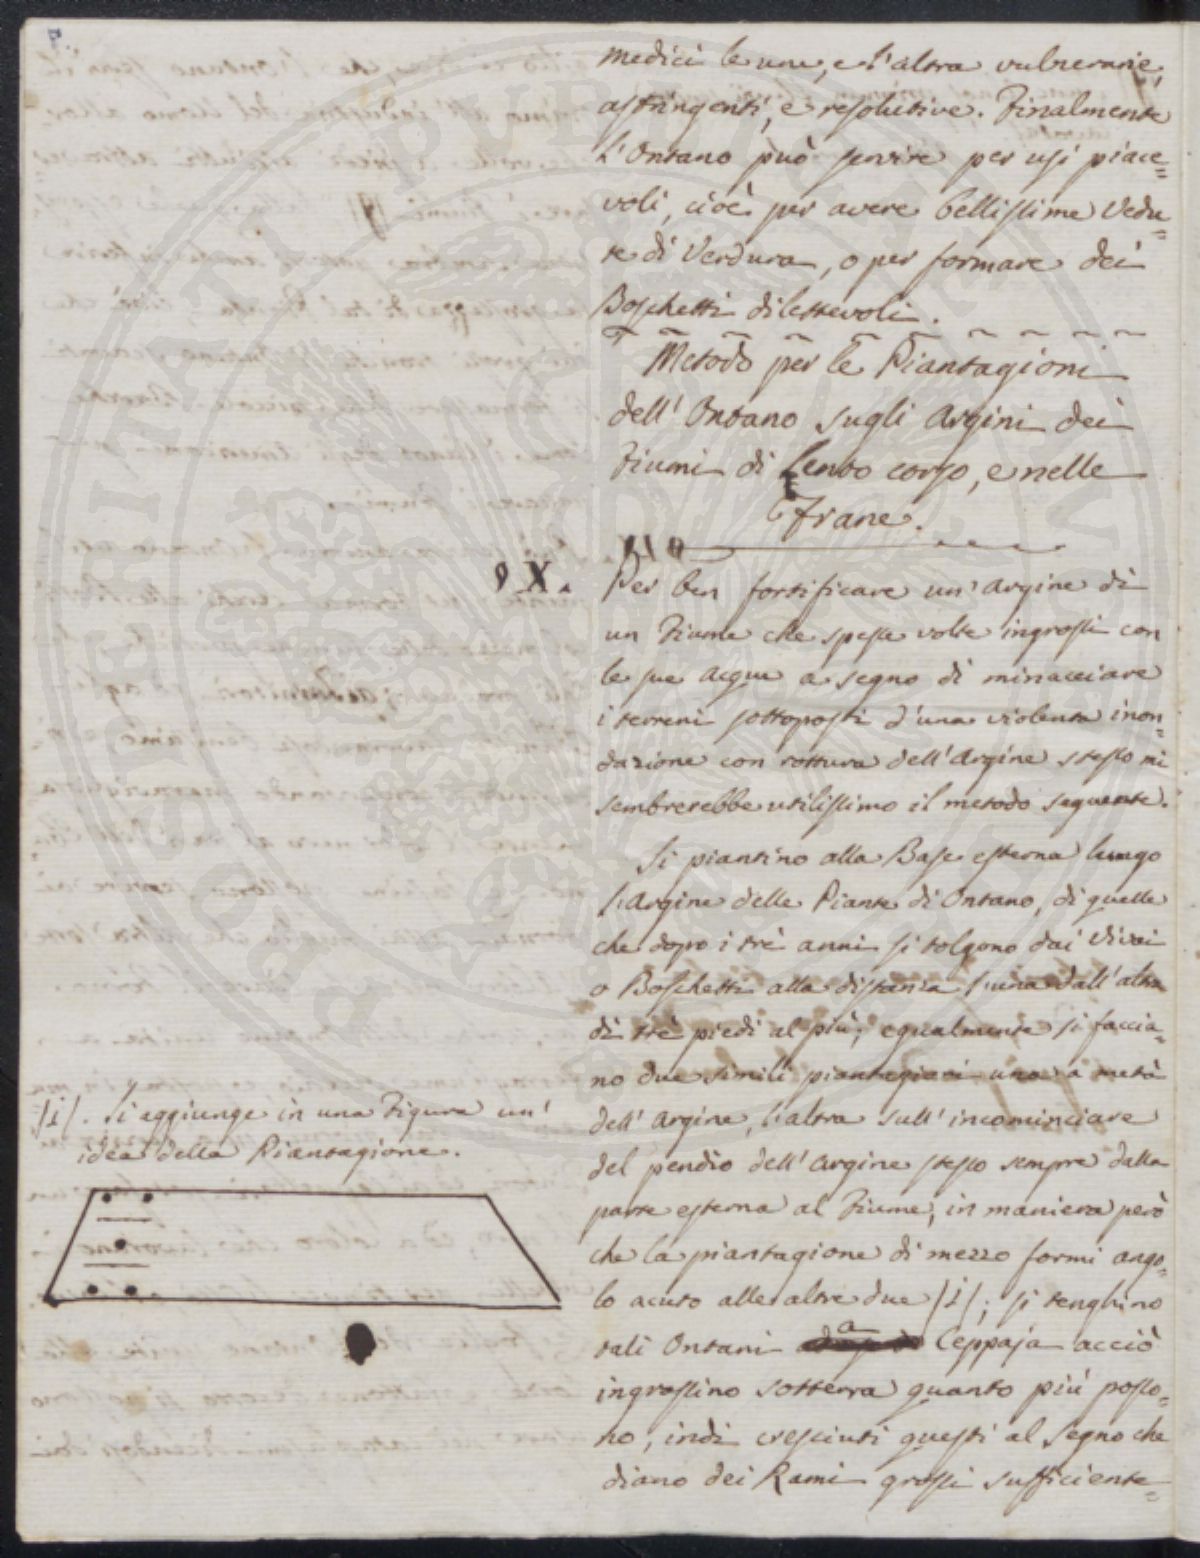 medici le une, e l'altra vulnerarie,
astringenti, e resolutive. Finalmente
l'Ontano può servire per usi piace=
voli, cioè per avere bellissime Vedu=
te di Verdura, o per formare dei
Boschetti dilettevoli.
Metodo per le Piantagioni
dell'Ontano sugli Argini dei
Fiumi di Lento corso, e nelle
Frane.
§ X. Per ben fortificare un'argine di
un Fiume che spesse volte ingrossi con
le sue acque a segno di minacciare
i terreni sottoposti d'una violenta inon=
dazione con rottura dell'Argine stesso mi
sembrerebbe utilissimo il metodo seguente.
Si piantino alla Base esterna lungo
l'Argine delle Piante di Ontano, di quelle
che dopo i trè anni si tolgono dai Vivai
o Boschetti alla distanza l'una dall'altra
di trè piedi al più; egualmente si faccia=
no due simili piantagioni una a metà
dell'argine, l'altra sull'incominciare
del pendio dell'argine stesso sempre dalla
parte esterna al Fiume, in maniera però
che la piantagione di mezzo formi ango=
lo acuto alle altre due /i/; si tenghino
tali Ontani a Ceppaja acciò
ingrossino sotterra quanto più posso=
no, indi cresciuti questi al segno che
diano dei Rami grossi sufficiente=
/i/. Si aggiunge in una Figura un'
idea della Piantagione.